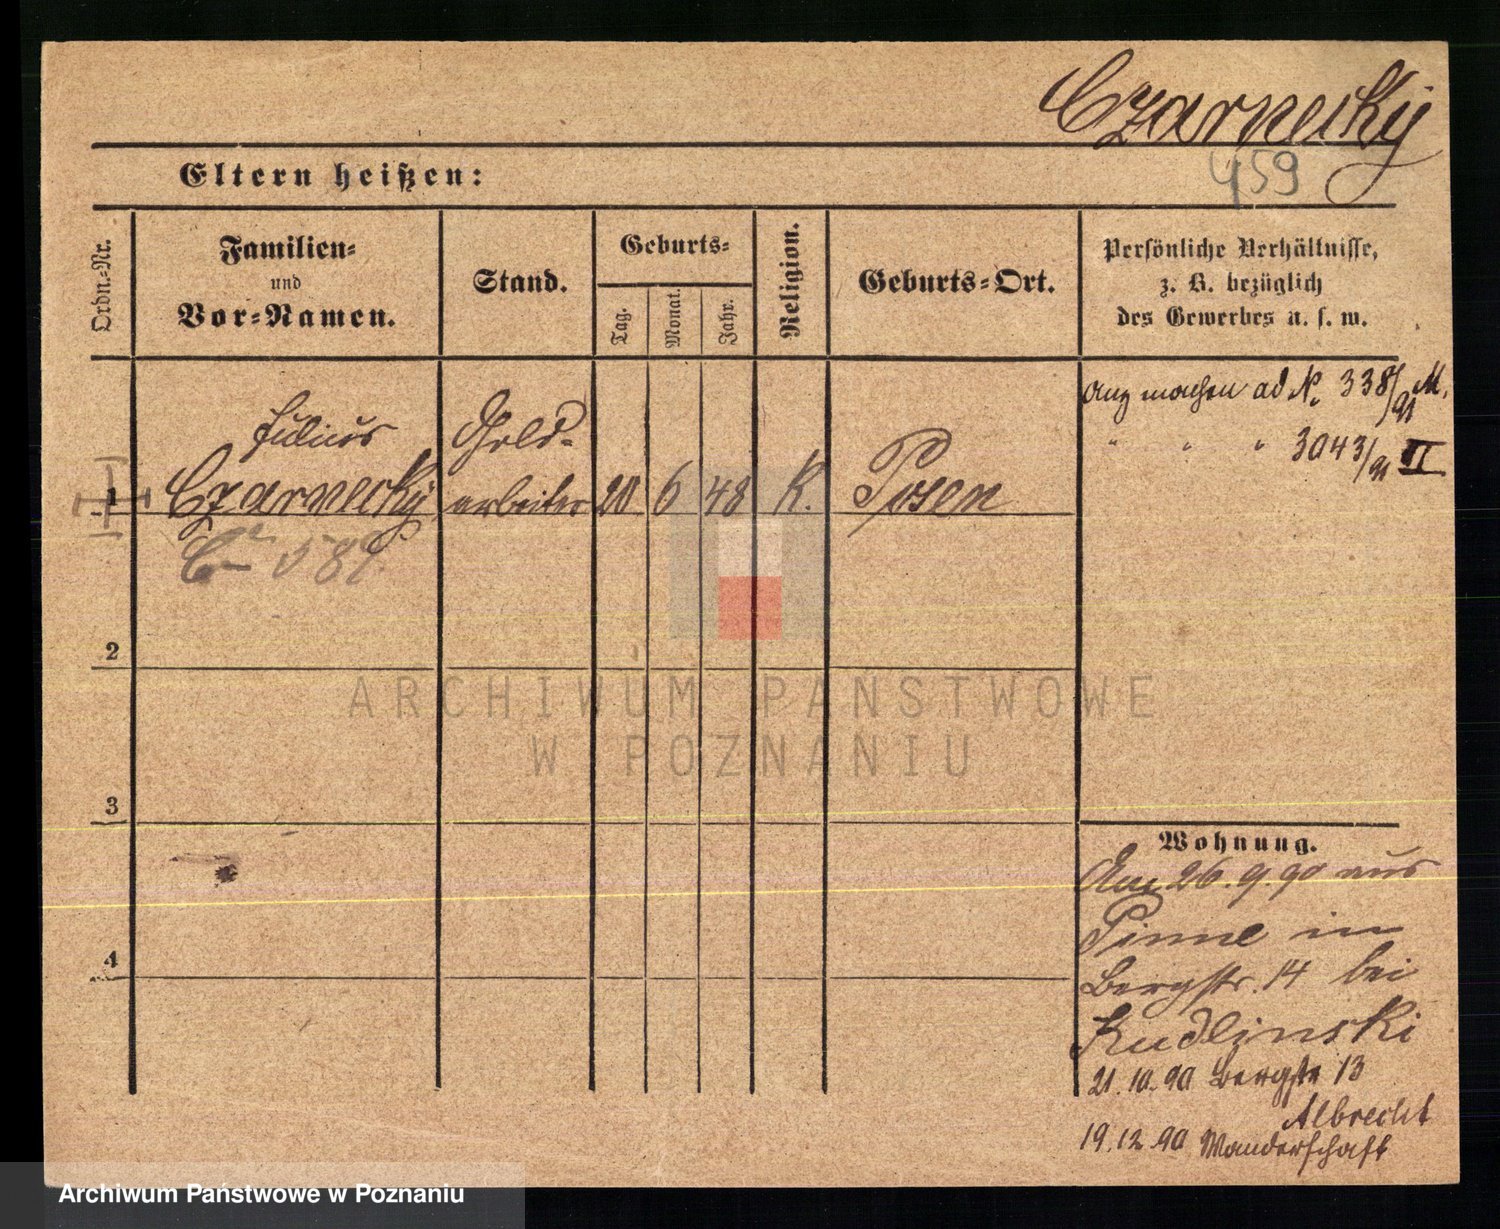 Czarnecky
459
Eltern heißen:
Ordn.=Nr.
Familien=
und
Vor=Namen.
Stand.
Geburts=
Tag.
Monat.
Jahr.
Religion.
Geburts=Ort.
Persönliche Verhältnisse,
z. B. bezüglich
des Gewerbes u. s. w.
1
Julius
Czarnecky
Gold=
arbeiter
20
6
48
K.
Posen
ad No. 338/91 M.
" " " 3043/91 II
2
3
4
ARCHIWUM PAŃSTWOWE
W POZNANIU
Wohnung.
26.9.90 aus
Pinne in
Bergstr. 14 bei
Kudlinski
21.10.90 Bergstr 13
Albrecht
19.12.90 Wanderschaft
Archiwum Państwowe w Poznaniu